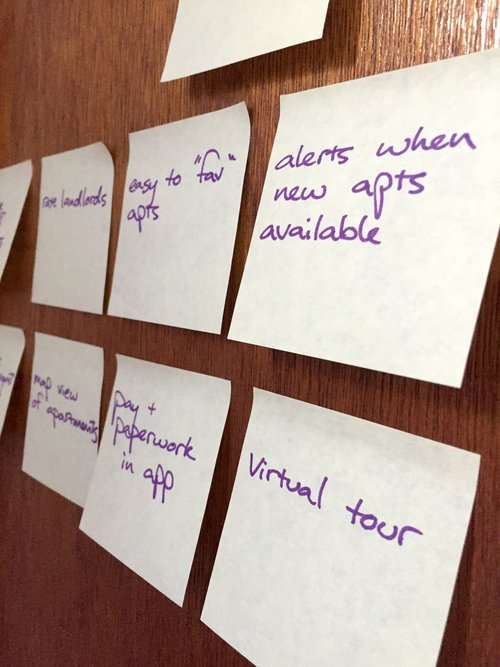 rate landlords
easy to "fav"
apts
alerts when
new apts
available
map view
of apartments
pay +
paperwork
in app
Virtual tour